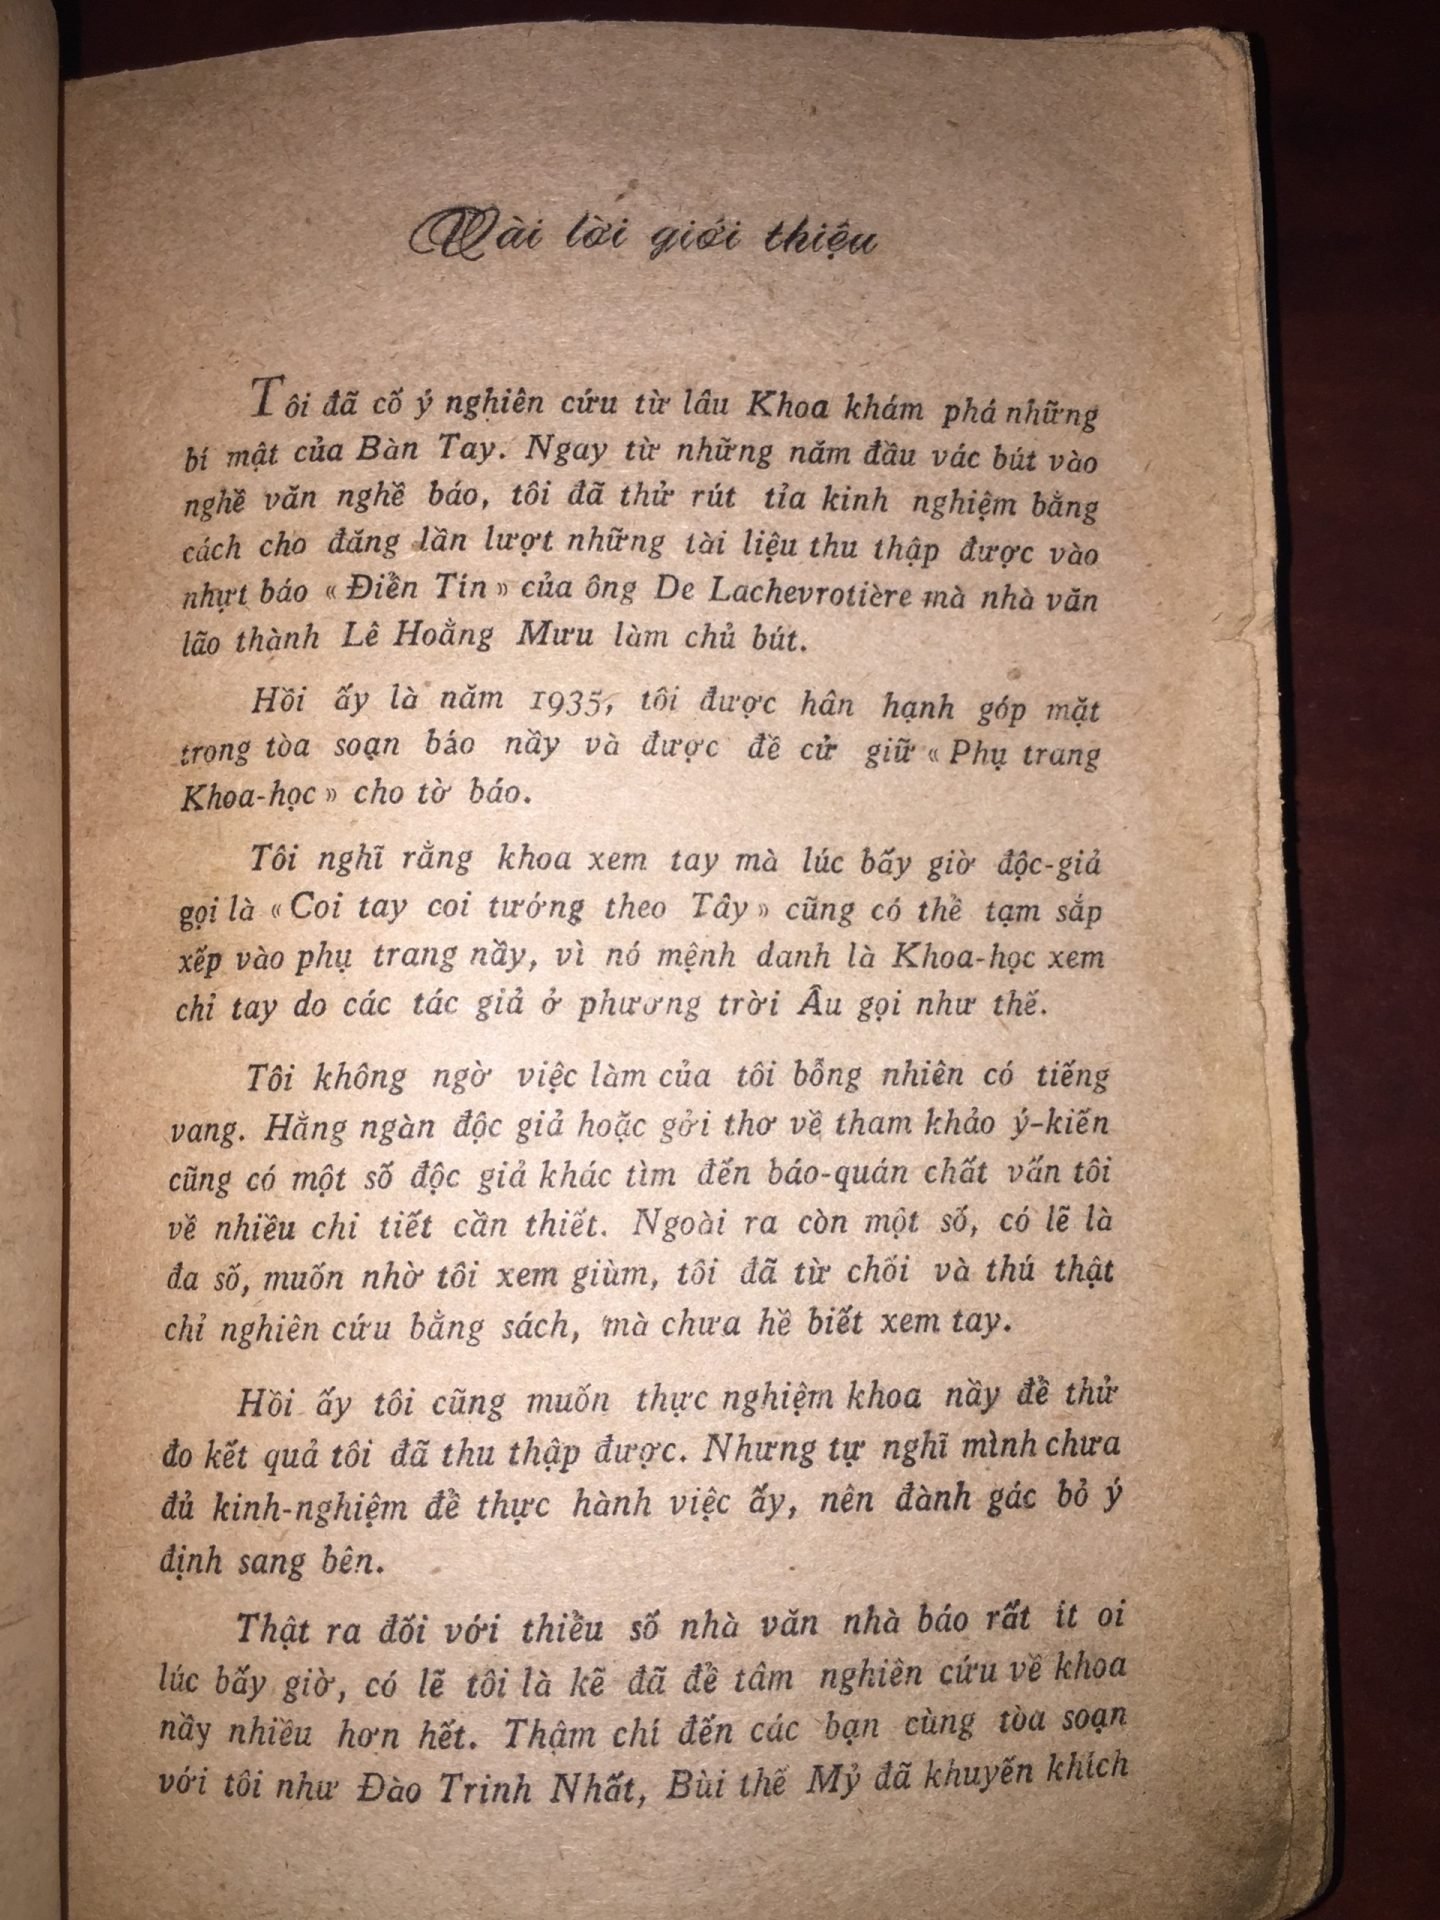 Vài lời giới thiệu
Tôi đã cố ý nghiên cứu từ lâu Khoa khám phá những
bí mật của Bàn Tay. Ngay từ những năm đầu vác bút vào
nghề văn nghề báo, tôi đã thử rút tỉa kinh nghiệm bằng
cách cho đăng lần lượt những tài liệu thu thập được vào
nhựt báo « Điển Tín » của ông De Lachevrotière mà nhà văn
lão thành Lê Hoằng Mưu làm chủ bút.
Hồi ấy là năm 1935, tôi được hân hạnh góp mặt
trong tòa soạn báo nầy và được đề cử giữ « Phụ trang
Khoa-học » cho tờ báo.
Tôi nghĩ rằng khoa xem tay mà lúc bấy giờ độc-giả
gọi là « Coi tay coi tướng theo Tây » cũng có thể tạm sắp
xếp vào phụ trang nầy, vì nó mệnh danh là Khoa-học xem
chỉ tay do các tác giả ở phương trời Âu gọi như thế.
Tôi không ngờ việc làm của tôi bỗng nhiên có tiếng
vang. Hằng ngàn độc giả hoặc gởi thơ về tham khảo ý-kiến
cũng có một số độc giả khác tìm đến báo-quán chất vấn tôi
về nhiều chi tiết cần thiết. Ngoài ra còn một số, có lẽ là
đa số, muốn nhờ tôi xem giùm, tôi đã từ chối và thú thật
chỉ nghiên cứu bằng sách, mà chưa hề biết xem tay.
Hồi ấy tôi cũng muốn thực nghiệm khoa nầy để thử
đo kết quả tôi đã thu thập được. Nhưng tự nghĩ mình chưa
đủ kinh-nghiệm để thực hành việc ấy, nên đành gác bỏ ý
định sang bên.
Thật ra đối với thiểu số nhà văn nhà báo rất ít oi
lúc bấy giờ, có lẽ tôi là kẽ đã để tâm nghiên cứu về khoa
nầy nhiều hơn hết. Thậm chí đến các bạn cùng tòa soạn
với tôi như Đào Trinh Nhất, Bùi thế Mỷ đã khuyến khích